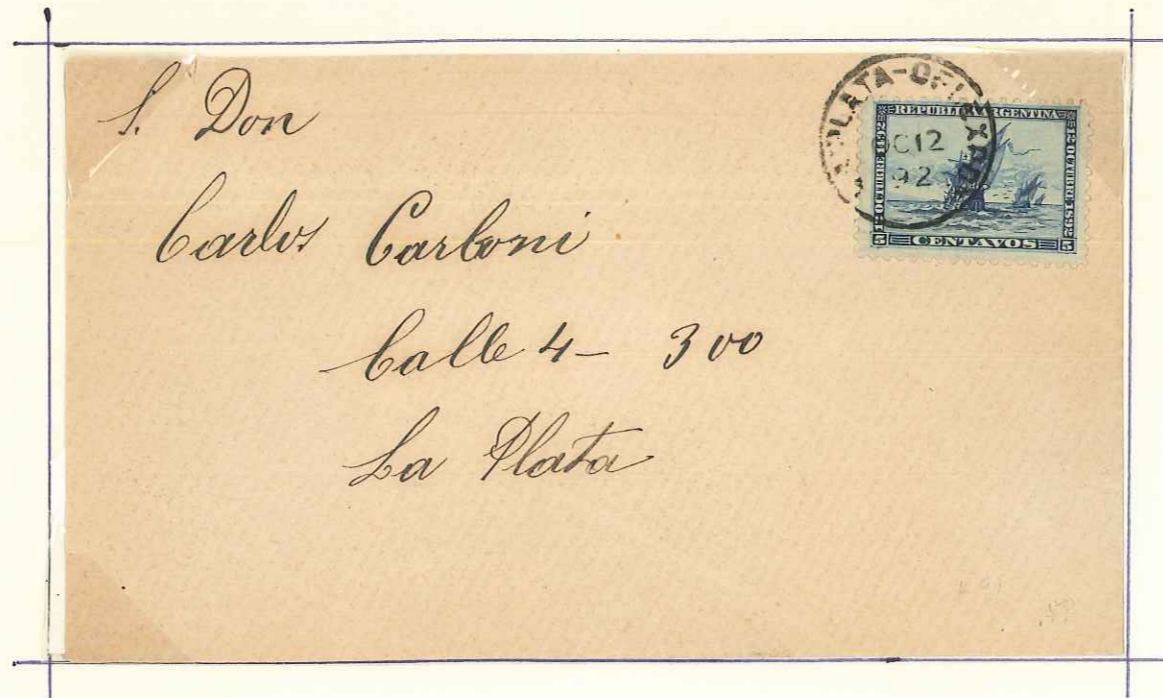 S. Don
Carlos Carboni
Calle 4 - 300
La Plata
LA PLATA-OFI
OC 12
92
REPUBLICA ARGENTINA
12 OCTUBRE 1492
12 OCTUBRE 1892
5 CENTAVOS 5